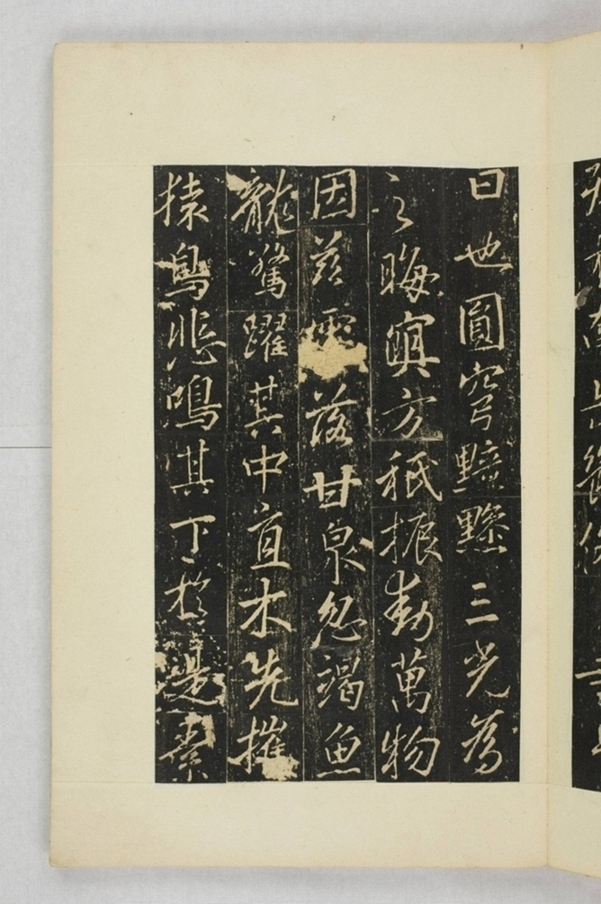 日也圓穹黯黲三光為
之晦暝方祇振動萬物
因茲落甘泉忽竭魚
龍驚躍其中直木先摧
猿鳥悲鳴其下於是素